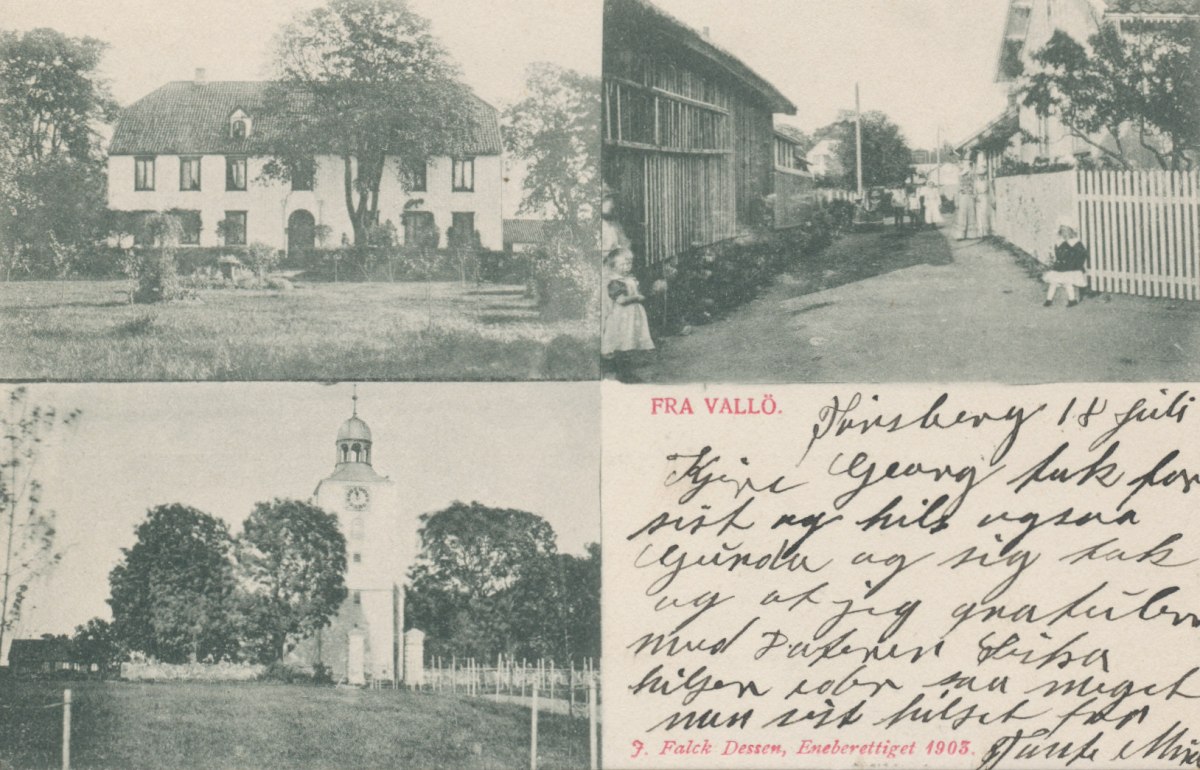 FRA VALLÖ.
Tønsberg 18 Juli
Kjere Georg tak for
sist og hils ogsaa
Gunda og sig tak
og at jeg gratuler
med Dateren
hilsen eder saa meget
nun sist hilset for
Tante
J. Falck Dessen, Eneberettiget 1903.